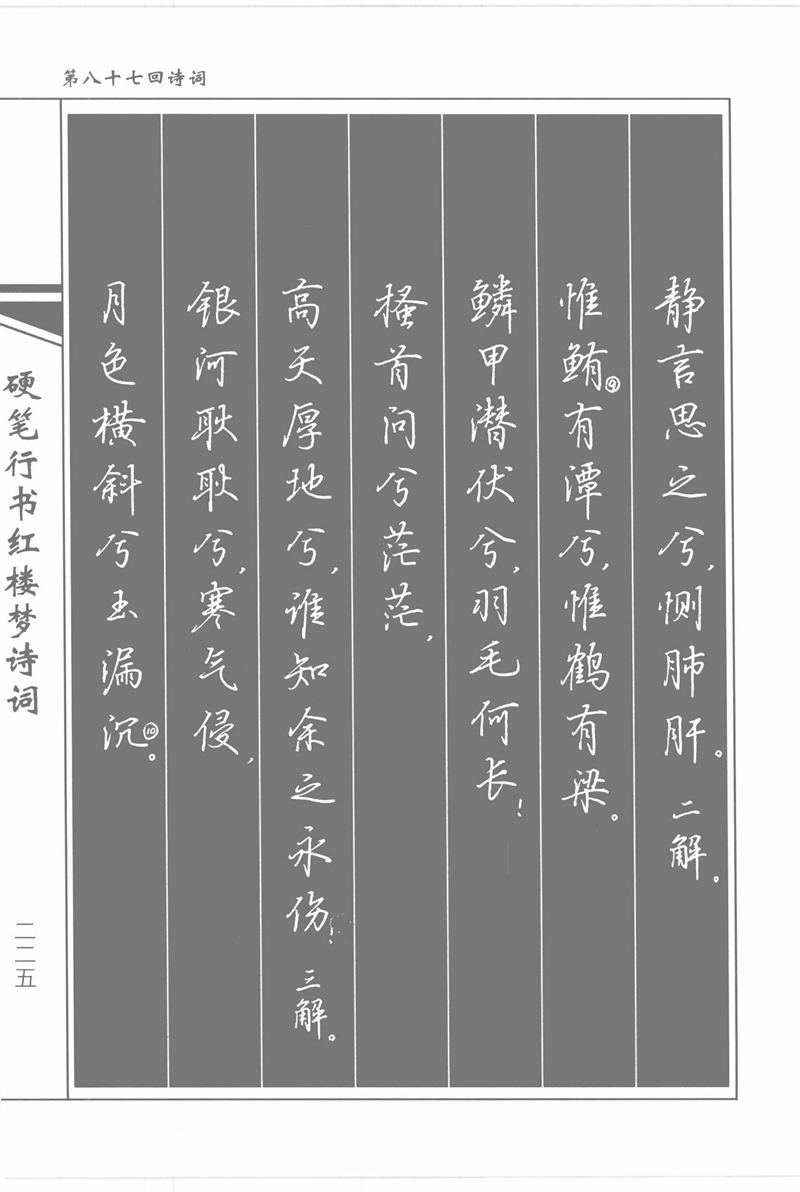 第八十七回诗词
静言思之兮,恻肺肝。二解。
惟鲔⑨有潭兮,惟鹤有梁。
鳞甲潜伏兮,羽毛何长!
搔首问兮茫茫,
高天厚地兮,谁知余之永伤!三解。
银河耿耿兮,寒气侵,
月色横斜兮玉漏沉⑩。
硬笔行书红楼梦诗词
二二五